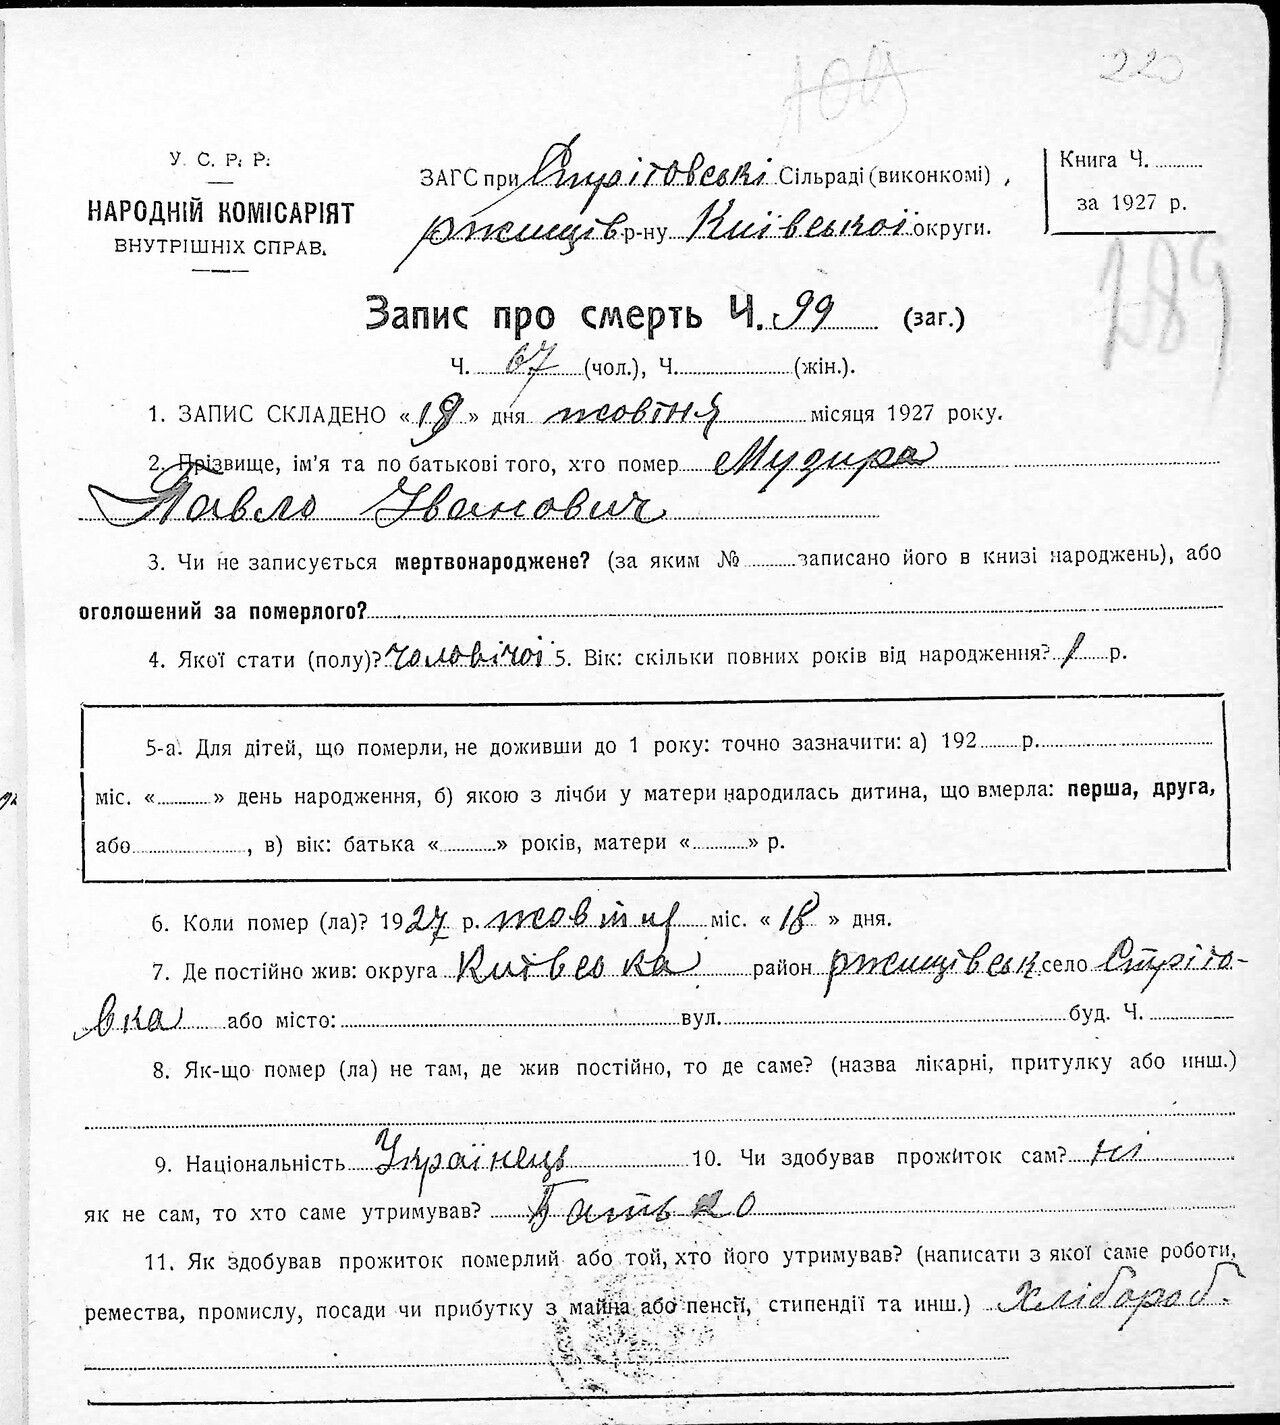 220
У. С. Р. Р.
НАРОДНІЙ КОМІСАРІЯТ
ВНУТРІШНІХ СПРАВ.
ЗАГС при Стрітовські Сільраді (виконкомі),
ржищів р-ну Київської округи.
Книга Ч.
за 1927 р.
289
Запис про смерть Ч. 99 (заг.)
Ч. 67 (чол.), Ч. (жін.).
1. ЗАПИС СКЛАДЕНО «19» дня жовтня місяця 1927 року.
2. Прізвище, ім'я та по батькові того, хто помер Мудира
Павло Іванович
3. Чи не записується мертвонароджене? (за яким № записано його в книзі народжень), або
оголошений за померлого?
4. Якої стати (полу)? чоловічої 5. Вік: скільки повних років від народження? 1 р.
5-а. Для дітей, що померли, не доживши до 1 року: точно зазначити: а) 192 р.
міс. « » день народження, б) якою з лічби у матери народилась дитина, що вмерла: перша, друга,
або , в) вік: батька « » років, матери « » р.
6. Коли помер (ла)? 1927 р. жовтня міс. «18» дня.
7. Де постійно жив: округа Київська район ржищівськ село Стріто-
вка або місто: вул. буд. Ч.
8. Як-що помер (ла) не там, де жив постійно, то де саме? (назва лікарні, притулку або инш.)
9. Національність Українець 10. Чи здобував прожиток сам? ні
як не сам, то хто саме утримував? Батько
11. Як здобував прожиток померлий або той, хто його утримував? (написати з якої саме роботи,
ремества, промислу, посади чи прибутку з майна або пенсії, стипендії та инш.) Хлібороб.